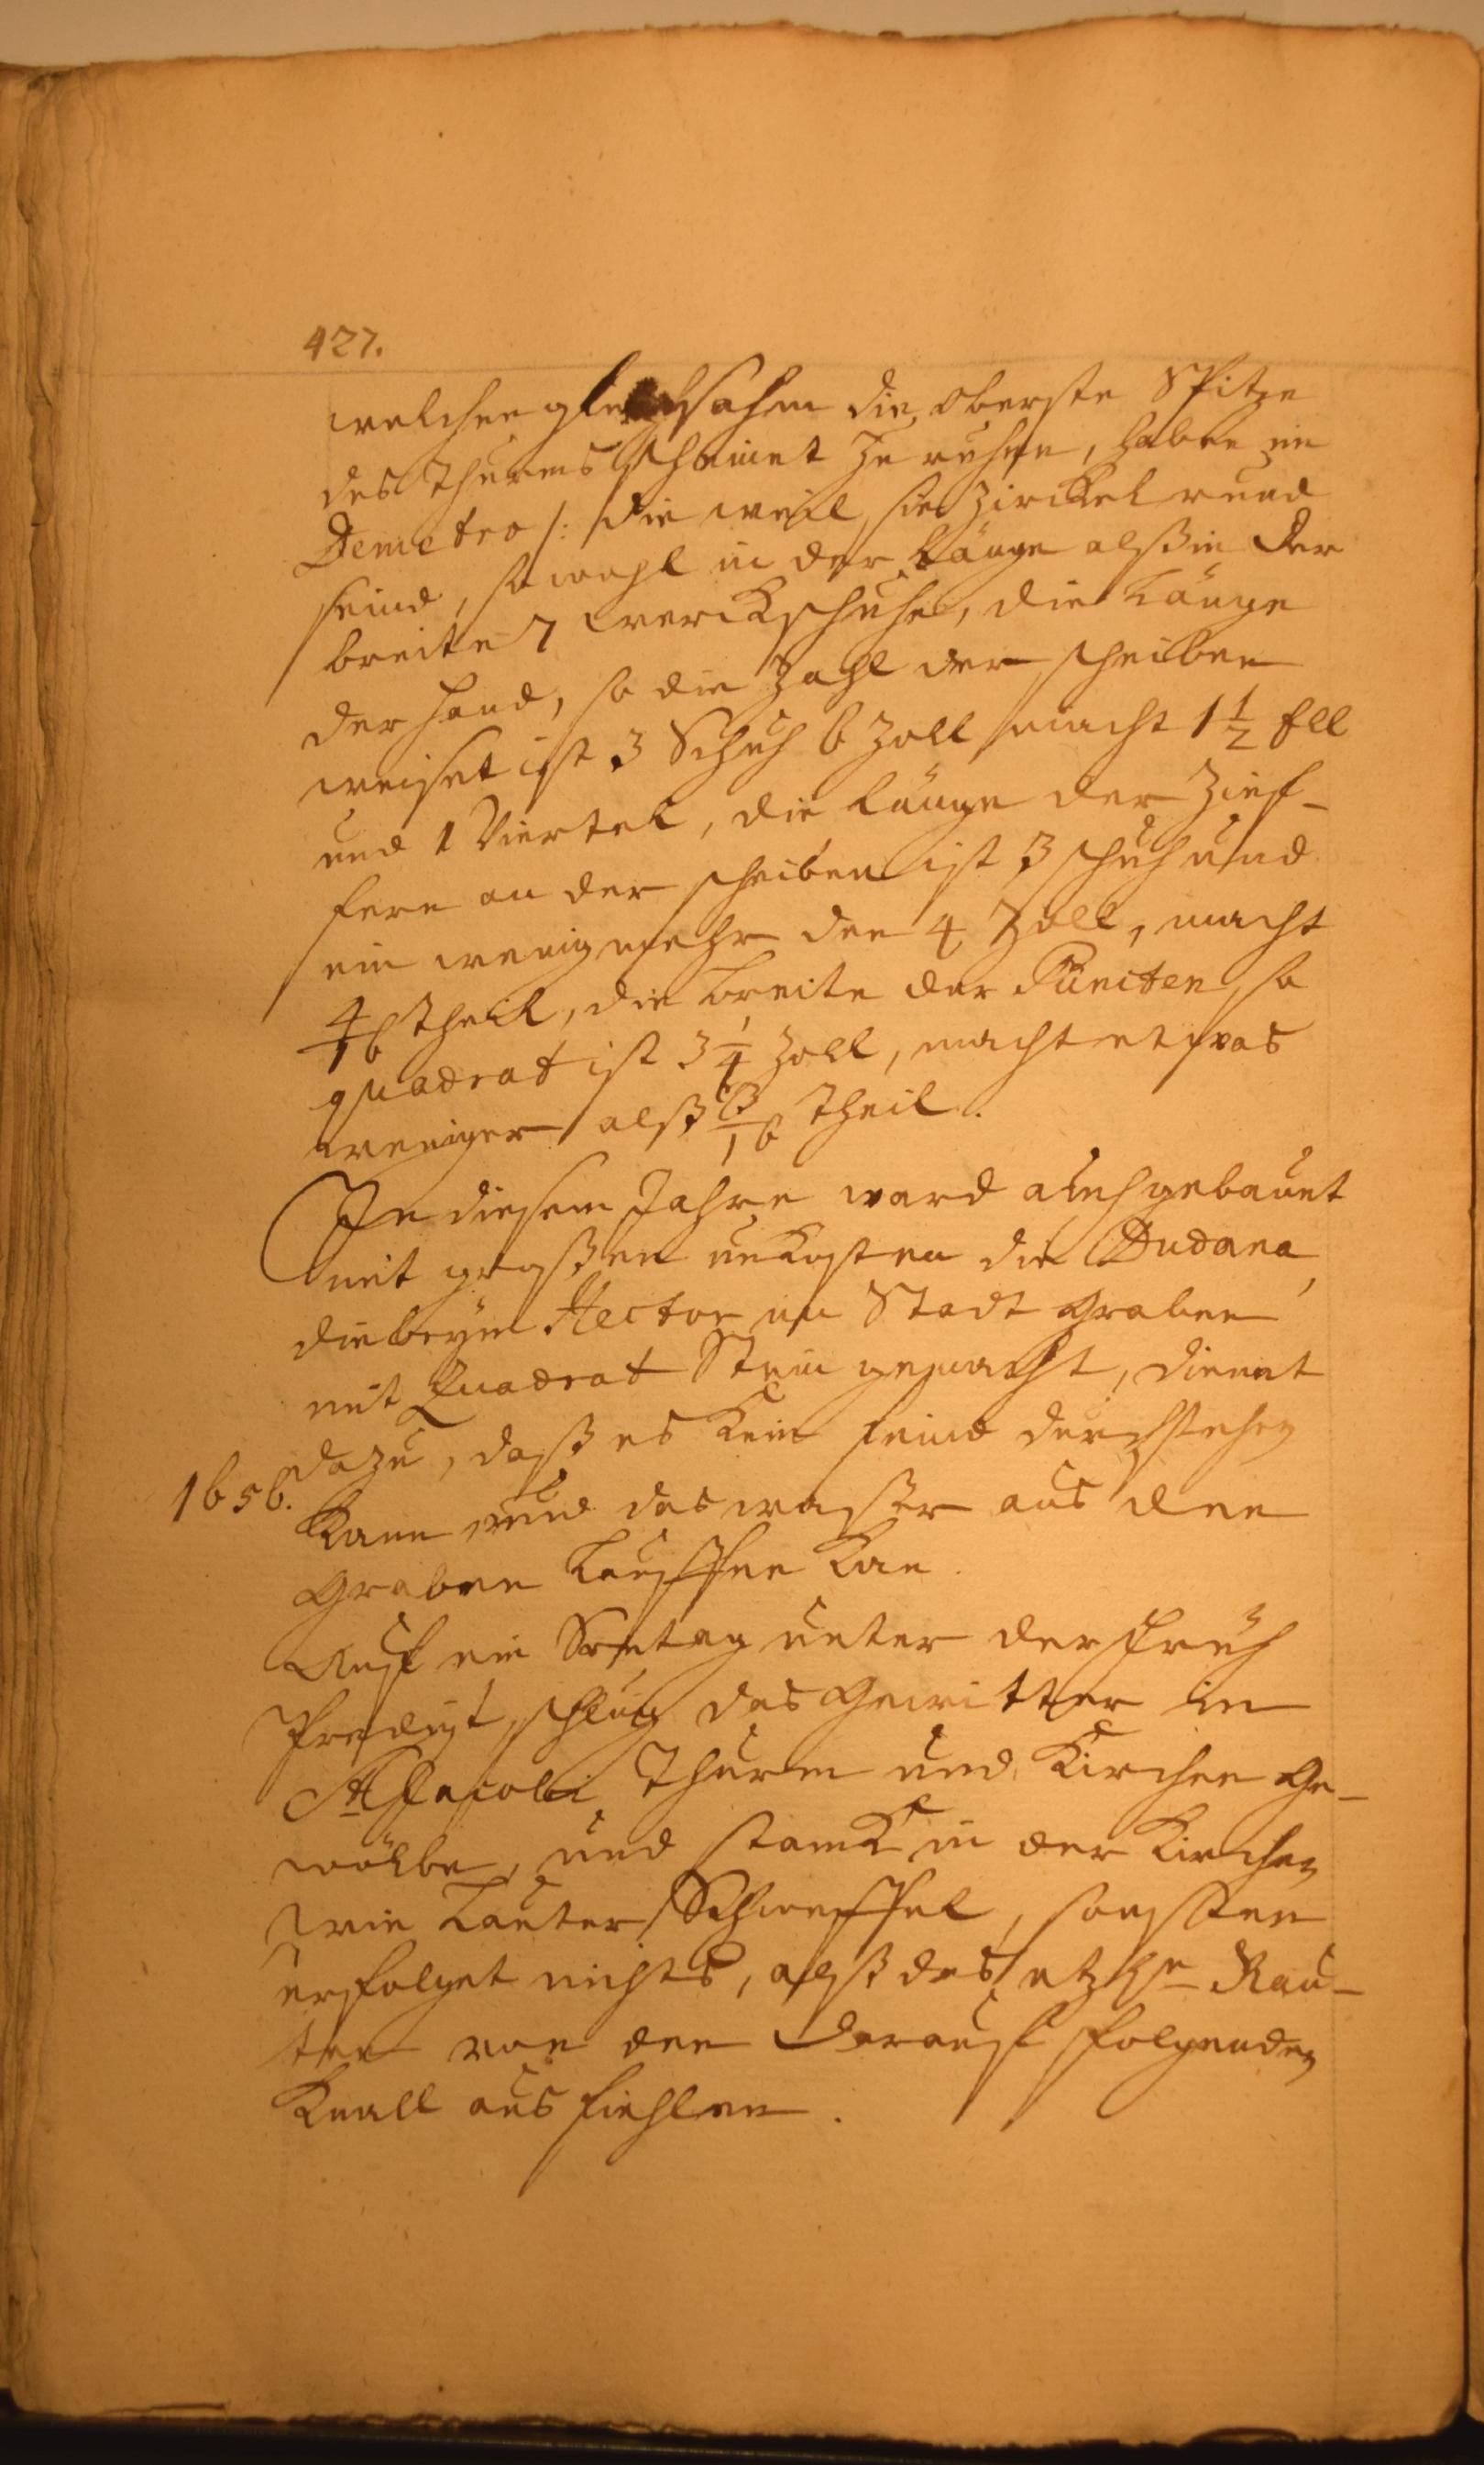 427.
welchen gleichsahm die oberste Spitze
des Thurms scheinet zu ruhen, haben im
Demetro /: die weil sie Zirckel rund
seind, so wohl in der Länge alß in der
breite 7 werckschuhe, die Länge
der Hand, so die Zahl der scheiben
weiset ist 3 Schuh 6 Zoll macht 1 1/2 Ell
und 1 Viertel, die Länge der Zief-
fern an der scheiben ist 3 schuh und
ein wenig mehr den 4 Zoll, macht
4/16 theil, die breite der Puncten so
quadrat ist 3 1/4 Zoll, macht etwas
weniger alß 3/16 theil.
In diesem Jahre ward auch gebauet
mit großen unkosten die Dudana,
die beÿm Hector im Stadt graben
mit Quadrat Stein gemacht, dienet
dazu, daß es kein feind durchstehen
1656.
kann und das waßer aus den
graben lauffen kan.
Auff ein Sontag unter der früh
Predigt, schlug das Gewitter in
St. Jacobi Thurm und Kirchen Ge-
wölbe, und stanck in der Kirchen
wie lauter Schweffel, sonsten
erfolget nichts, alß das etzl. Rau-
ten von den darauff folgenden
Knall aus fiehlen.